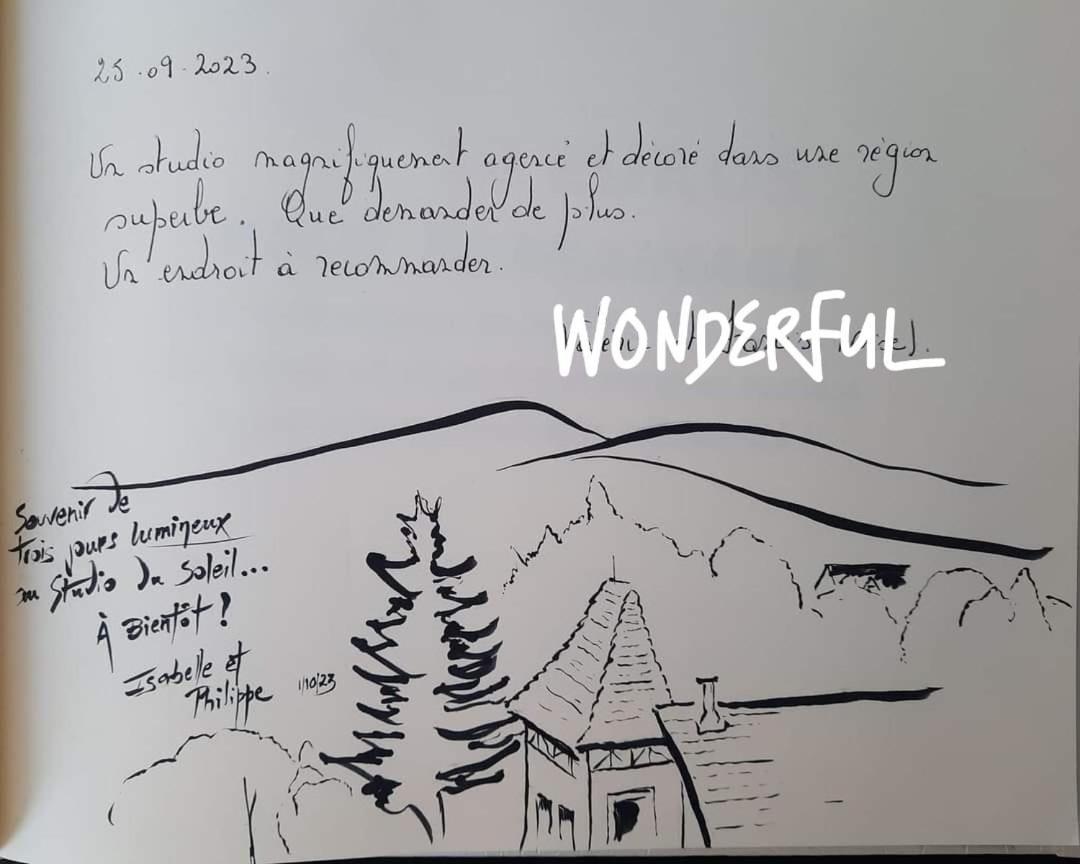 25.09.2023.
Un studio magnifiquement agencé et décoré dans une région
superbe. Que demander de plus.
Un endroit à recommander.
WONDERFUL
et
Souvenir de
trois jours lumineux
au Studio Du Soleil...
À Bientôt !
Isabelle et
Philippe 1/10/23